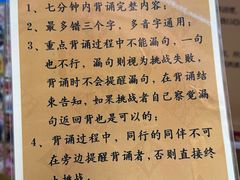 1、七分钟内背诵完整内容；
2、最多错三个字，多音字通用；
3、重点背诵过程中不能漏句，一句
也不行，漏句则视为挑战失败，
背诵时不会提醒漏句，在背诵结
束告知，如果挑战者自己察觉漏
句返回背也是可以的；
4、背诵过程中，同行的同伴不可
在旁边提醒背诵者，否则直接终
止挑战。